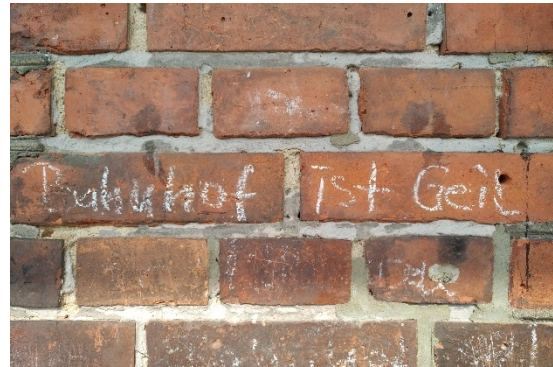 Bahnhof ist Geil